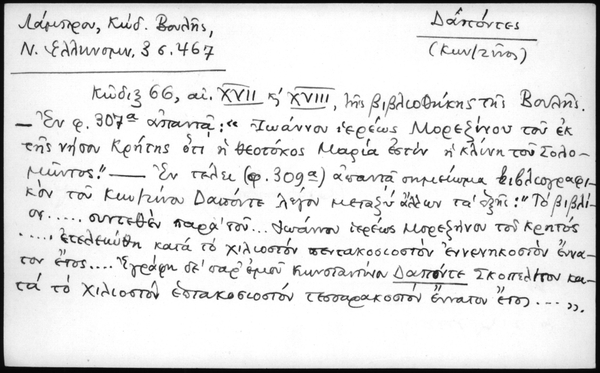 Λάμπρου, Κώδ. Βουλῆς,
Ν. Ἑλληνομν. 3 σ. 467
Δαπόντες
(Κων/τῖνος)
Κῶδιξ 66, αἰ. XVII κ' XVIII, τῆς βιβλιοθήκης τῆς Βουλῆς.
— Ἐν φ. 307α ἀπαντᾷ: "Ἰωάννου ἱερέως Μορεζίνου τοῦ ἐκ
τῆς νήσου Κρήτης ὅτι ἡ θεοτόκος Μαρία ἐστὶν ἡ κλίνη τοῦ Σολο-
μῶντος". — Ἐν τέλει (φ. 309α) ἀπαντᾷ σημείωμα βιβλιογραφι-
κὸν τοῦ Κων/τίνου Δαπόντε λέγον μεταξὺ ἄλλων τὰ ἑξῆς: "Τὸ βιβλί-
ον..... συντεθὲν παρὰ τοῦ... Ἰωάννου ἱερέως Μορεζήνου τοῦ Κρητός
..... ἐτελειώθη κατὰ τὸ χιλιοστὸν πεντακοσιοστὸν ἐννενηκοστὸν ἔννα-
τον ἔτος.... Ἐγράφη δὲ παρ' ἐμοῦ Κωνσταντίνου Δαπόντε Σκοπελίτου κα-
τὰ τὸ χιλιοστὸν ἑπτακοσιοστὸν τεσσαρακοστὸν ἔννατον ἔτος....».